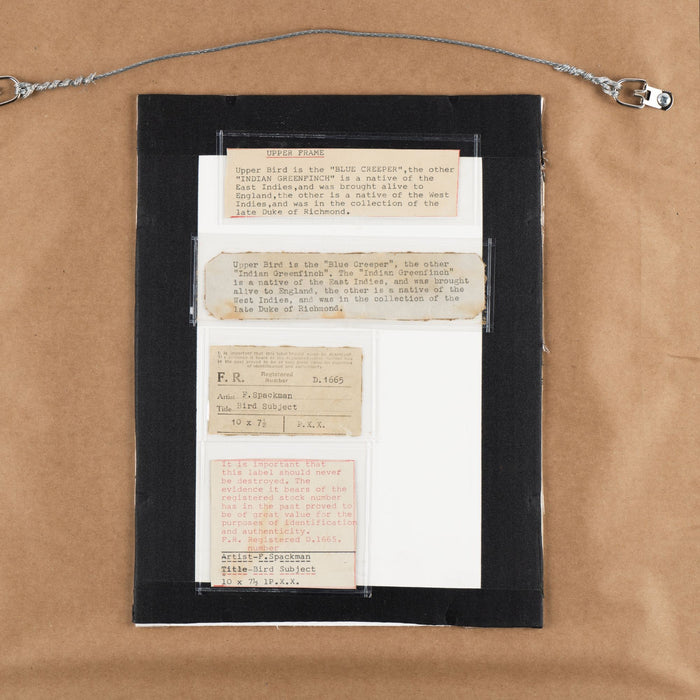 UPPER FRAME
Upper Bird is the "BLUE CREEPER",the other
"INDIAN GREENFINCH" is a native of the
East Indies,and was brought alive to
England,the other is a native of the West
Indies,and was in the collection of the
late Duke of Richmond.
Upper Bird is the "Blue Creeper", the other
"Indian Greenfinch". The "Indian Greenfinch"
is a native of the East Indies, and was brought
alive to England, the other is a native of the
West Indies, and was in the collection of the
late Duke of Richmond.
It is important that this label should never be destroyed. The
evidence it bears of the registered stock number has
in the past proved to be of great value for the purposes
of identification and authenticity.
F. R. Registered Number D.1665
Artist F.Spackman
Title Bird Subject
10 x 7½ P.X.X.
It is important that
this label should never
be destroyed. The
evidence it bears of the
registered stock number
has in the past proved to
be of great value for the
purposes of identification
and authenticity.
F.R. Registered D.1665.
number
Artist-F.Spackman
Title-Bird Subject
10 x 7½ 1P.X.X.